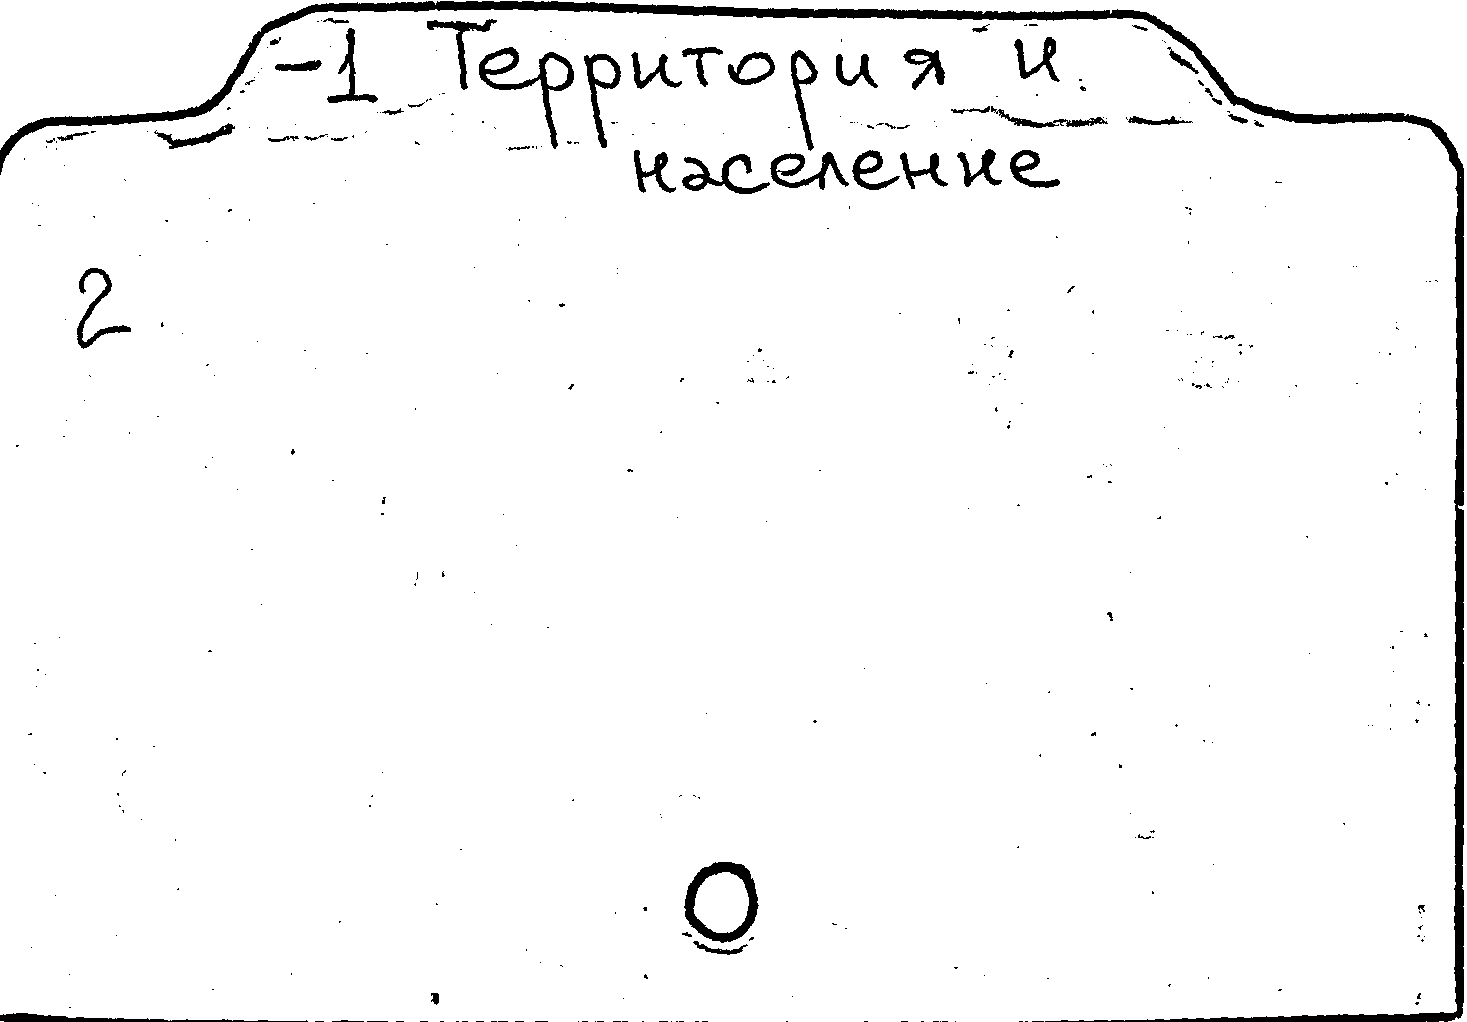 -1 Территория и
население
2